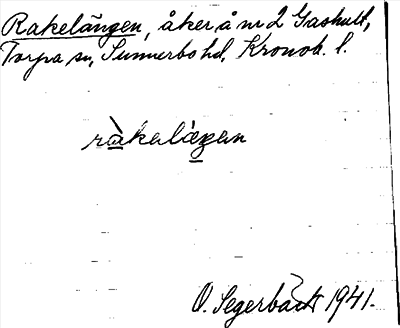 Rakelängen, åker å nr 2 Gashult,
Torpa sn, Sunnerbo hd, Kronob. l.
ràkalàgan
O. Segerbäck 1941.